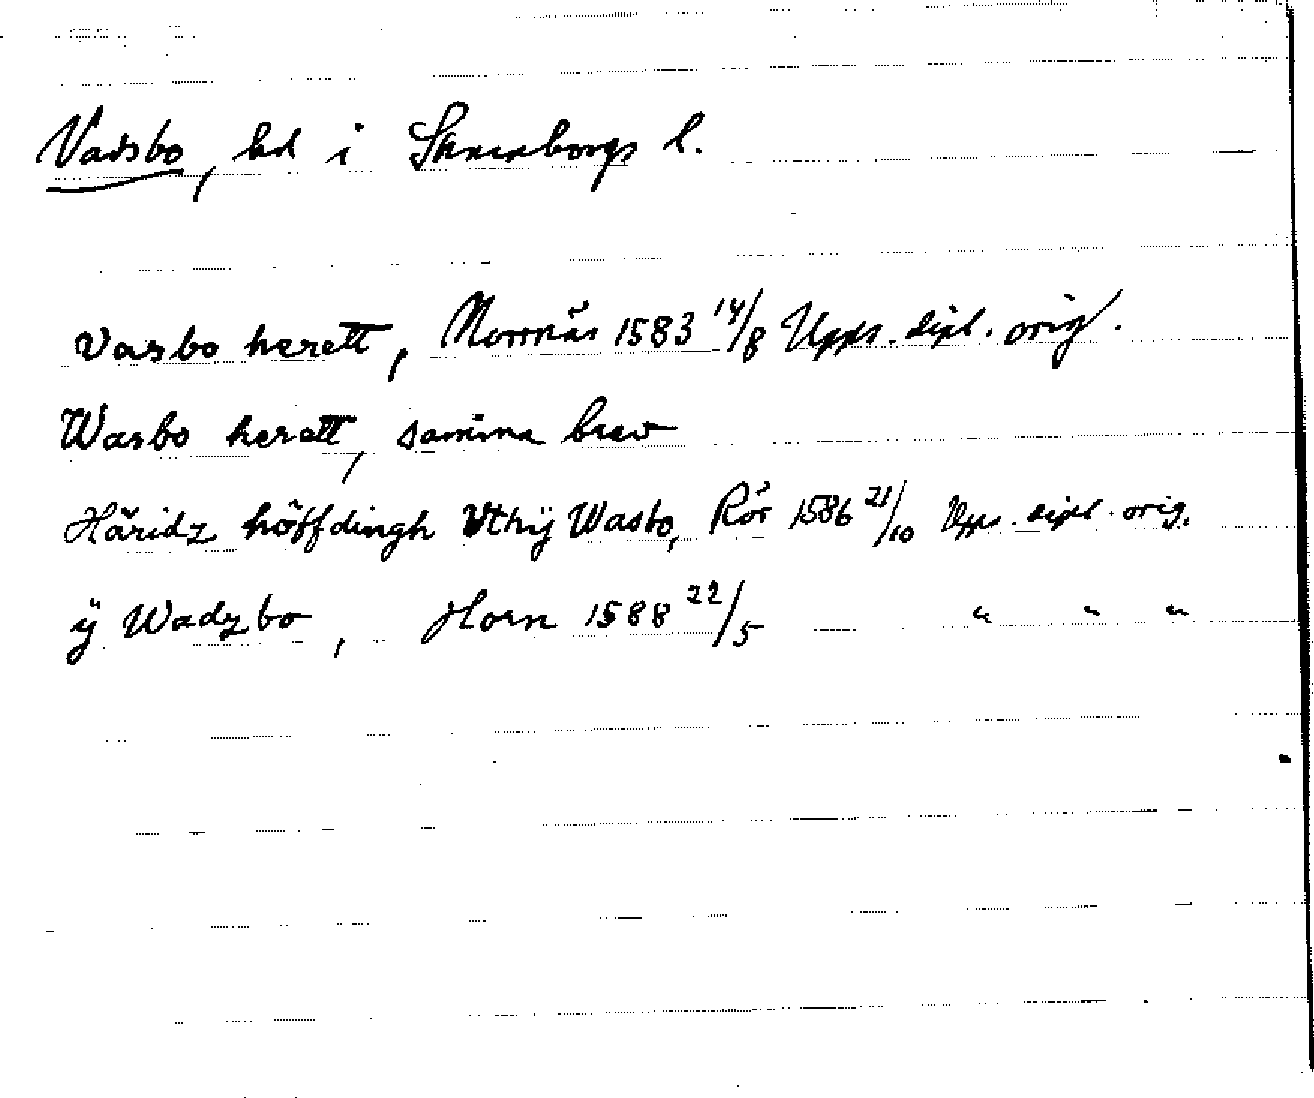 Vadsbo, hd i Skaraborgs l.
Vasbo herett, Norrnäs 1583 14/8 Upps. dipl. orig.
Wasbo herett, samma brev
Häridz höffdingh Vthÿ Wasbo, Rör 1586 21/10 Upps. dipl. orig.
ÿ Wadzbo, Horn 1588 22/5 " " "